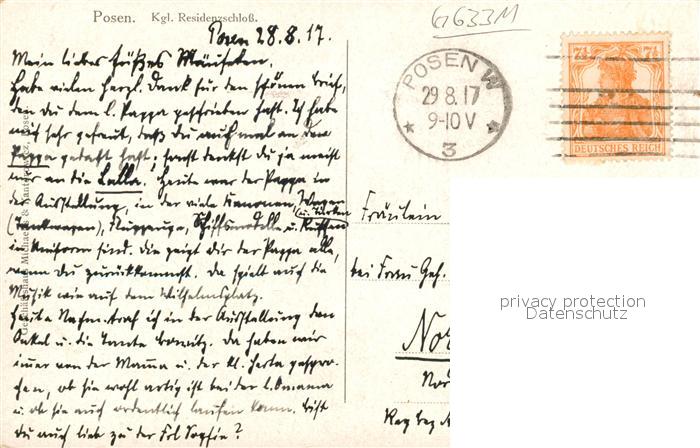 Posen. Kgl. Residenzschloß.
G633M
Posen 28.8.17.
Mein liebes süßes Mäuschen.
Habe vielen herzl. Dank für den schönen Brief,
den Du dem l. Pappa geschrieben hast. Ich habe
mich sehr gefreut, daß Du auch mal an den
Pappa gedacht hast; sonst denkst Du ja meist
nur an die Lalla. Heute war der Pappa in
der Ausstellung, in der viele Kanonen, Wagen
(Tankwagen), Flugzeuge, Schiffsmodelle u. Russen
u. Türken
in Uniform sind. Die zeigt Dir der Pappa alle,
wenn Du zurückkommst. Da spielt auch die
Musik wie auf dem Wilhelmsplatz.
Heute Nachm. traf ich in der Ausstellung den
Onkel u. die Tante. Da haben wir
immer von der Mamma u. der kl. Herta gespro-
chen, ob sie wohl artig ist bei der l. Omama
u. ob sie auch ordentlich laufen kann. Bist
Du auch lieb zu der Frl Sophie?
POSEN W
29 8.17
9-10 V
* 3 *
7½ 7½
DEUTSCHES REICH
Fräulein
bei Frau Geh.
Nor
Nör
Reg bez
privacy protection
Datenschutz